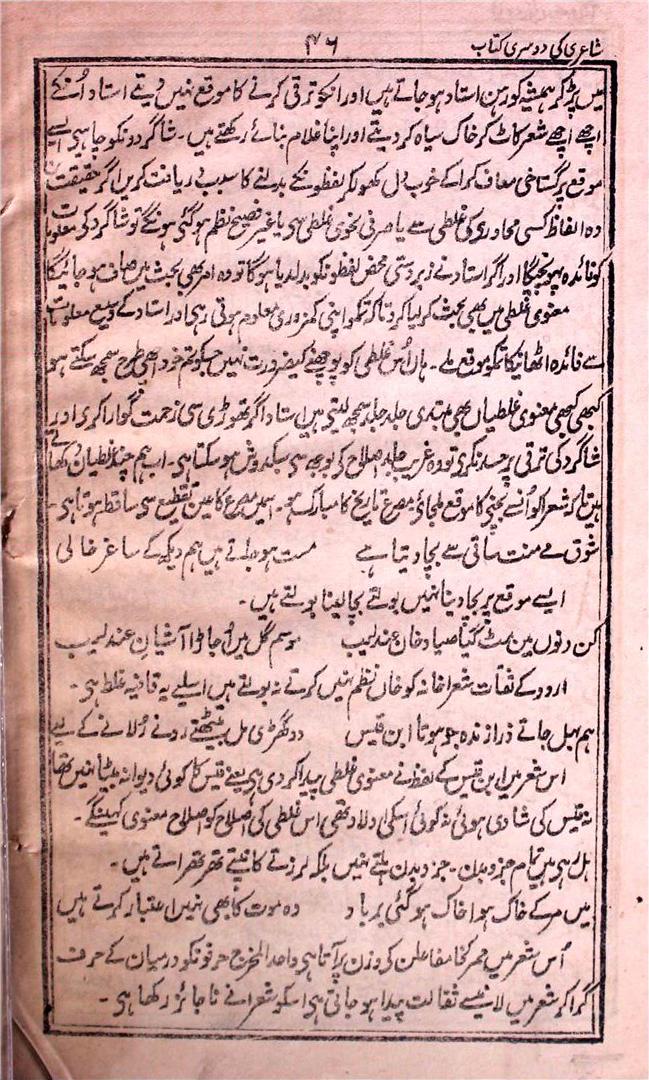 شاعری کی دوسری کتاب ۴۶
میں پڑ کر ہمیشہ کو رہن استاد ہو جاتے ہیں اور انکو ترقی کرنے کا موقع نہیں دیتے استاد اُنکے
اچھے اچھے شعر کاٹ کر خاک سیاہ کر دیتے اور اپنا غلام بنائے رکھتے ہیں۔ شاگردونکو چاہیی ایسے
موقع پر گستاخی معاف کرا کے خوب دل کھولکر لفظونکے بدلنے کا سبب دریافت کریں اگر حقیقت
وہ الفاظ کسی محاوری کی غلطی سے یا صرفی نحوی غلطی سی یا غیر فصیح نظم ہو گئی ہونگے تو شاگرد کی معلومات
کو فائدہ پہونچیگا اور اگر استاد نے زبردستی محض لفظونکو بدلدیا ہوگا تو وہ امر بھی بحث میں صاف ہو جائیگا
معنوی غلطی میں بھی بحث کر لیا کرو تاکہ تمکو اپنی کمزوری معلوم ہوتی رہی اور استاد کے وسیع معلومات
سے فائدہ اٹھانیکا تمکو موقع ملے۔ ہاں اُس غلطی کو پوچھنے کیضرورت نہیں جسکو تم خود اچھی طرح سمجھ سکتے ہو
کبھی کبھی معنوی غلطیاں بھی مبتدی جلد جلد سمجھ لیتی ہیں استاد اگر تھوڑی سی زحمت گوارا کری اور
شاگرد کی ترقی پر حسد نکری تو وہ غریب جلد اصلاح کی بوجھ سی سبکدوش ہو سکتا ہی۔ اب ہم چند غلطیاں دکھاتے
ہیں تاکہ شعرا کو اُنسے بچنی کا موقع ملجائی مصرع تاریخ کا مبارک ہو۔ اسمیں مصرع کا عین تقطیع سی ساقط ہوتا ہی۔
شوق مے منت ساقی سے بچا دیتا ہے مست ہو جاتے ہیں ہم دیکھ کے ساغر خالی
ایسے موقع پر بچا دینا نہیں بولتے بچا لینا بولتے ہیں۔
کن دنوں میں مٹ گیا صیاد خان عندلیب موسم گل میں اُجاڑا آشیان عندلیب
اردو کے ثقات شعرا خانہ کو خان نظم نہیں کرتے نہ بولتے ہیں اسلیے یہ قافیہ غلط ہی۔
ہم بہل جاتے ذرا زندہ جو ہوتا ابن قیس دو گھڑی مل بیٹھتے رونے رُلانے کے لیے
اس شعر میں ابن قیس کے لفظ نے معنوی غلطی پیدا کر دی ہی یعنے قیس کا کوئی دیوانہ بیٹا نہیں تھا
نہ قیس کی شادی ہوئی نہ کوئی اسکی اولاد تھی اس غلطی کی اصلاح کو اصلاح معنوی کہینگے۔
ہل رہی ہیں تمام جزو بدن۔ جزو بدن ہلتے نہیں بلکہ لرزتے کانپتے تھرتھراتے ہیں۔
میں مر کے خاک ہوا خاک ہو گئی برباد وہ موت کا بھی نہیں اعتبار کرتے ہیں
اُس شعر میں مر کے خا مفاعلن کی وزن پر آتا ہی واحد المخرج حرفونکو درمیان کے حرف
گرا کر شعر میں لانیسے ثقالت پیدا ہو جاتی ہی اسکو شعرا نے ناجائز رکھا ہی۔